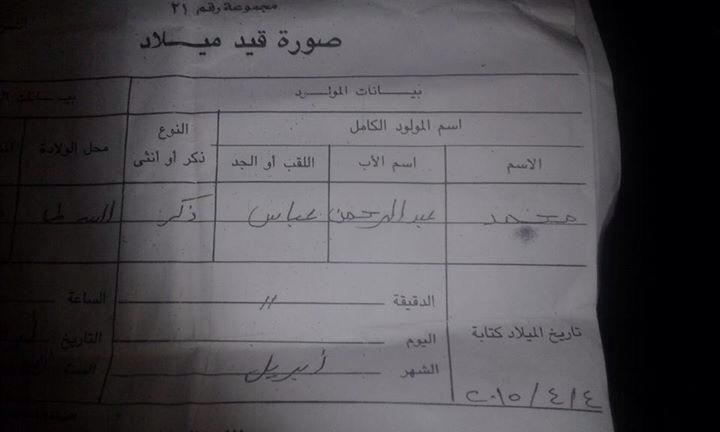 مجموعة رقم ٢١
صورة قيد ميلاد
بيانات المولود
اسم المولود الكامل
النوع
ذكر أو أنثى
محل الولادة
الاسم
اسم الأب
اللقب أو الجد
محمد
عبد الرحمن
عباس
ذكر
الدقيقة
〃
الساعة
تاريخ الميلاد كتابة
اليوم
التاريخ
الشهر
أبريل
٢٠١٥/٤/٤